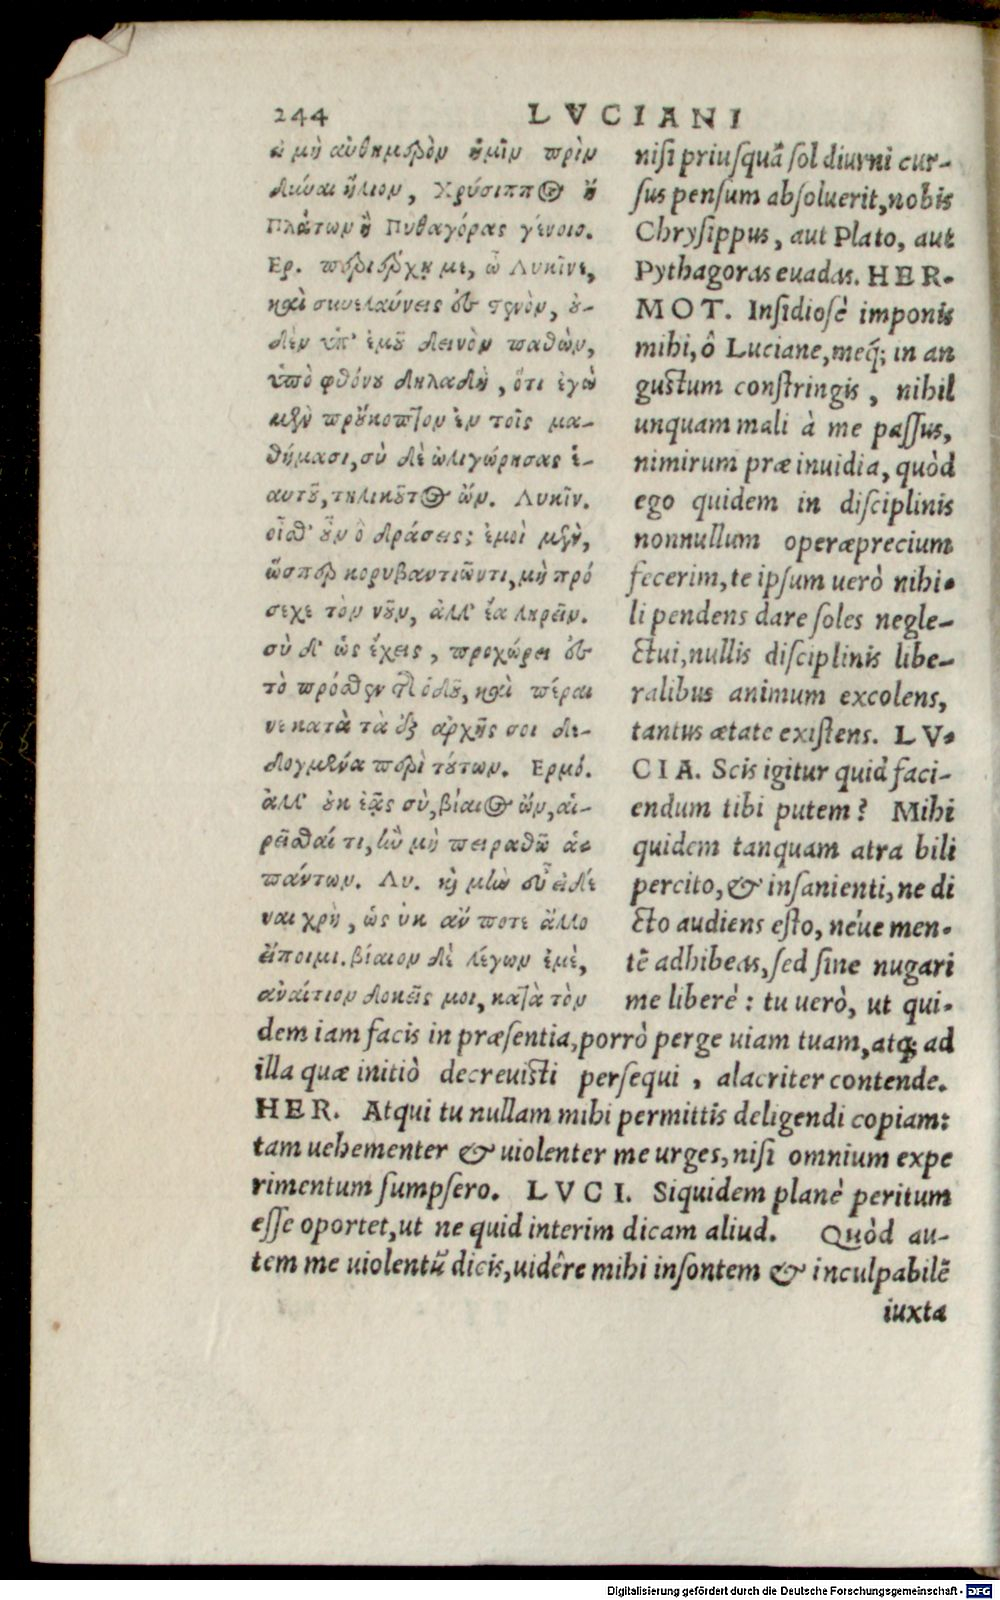 244 LVCIANI
εἰ μὴ αὐθημερὸν ἡμῖν πρὶν
δῦναι ἥλιον, Χρύσιππος ἢ
Πλάτων ἢ Πυθαγόρας γένοιο.
Ερ. περιέρχῃ με, ὦ Λυκῖνε,
καὶ συνελαύνεις ἐς στενὸν, οὐ-
δὲν ὑπ' ἐμοῦ δεινὸν παθὼν,
ὑπὸ φθόνου δηλαδὴ, ὅτι ἐγὼ
μὲν προὔκοπτον ἐν τοῖς μα-
θήμασι, σὺ δὲ ὠλιγώρησας ἑ-
αυτοῦ, τηλικοῦτος ὤν. Λυκῖν.
οἶσθ' οὖν ὃ δράσεις; ἐμοὶ μὲν,
ὥσπερ κορυβαντιῶντι, μὴ πρό
σεχε τὸν νοῦν, ἀλλ' ἔα ληρεῖν.
σὺ δ' ὡς ἔχεις, προχώρει ἐς
τὸ πρόσθεν τῆς ὁδοῦ, καὶ πέραι
νε κατὰ τὰ ἐξ ἀρχῆς σοι δε-
δογμένα περὶ τούτων. Ερμό.
ἀλλ' οὐκ ἐᾷς σὺ, βίαιος ὢν, αἱ-
ρεῖσθαί τι, ἢν μὴ πειραθῶ ἁ-
πάντων. Λυ. καὶ μὴν εὖ εἰδέ
ναι χρὴ, ὡς οὐκ ἄν ποτε ἄλλο
εἴποιμι. βίαιον δὲ λέγων ἐμὲ,
ἀναίτιον δοκεῖς μοι, κατὰ τὸν
nisi priusquã sol diurni cur-
sus pensum absoluerit, nobis
Chrysippus, aut Plato, aut
Pythagoras euadas. HER-
MOT. Insidiosè imponis
mihi, ô Luciane, meq́; in an
gustum constringis, nihil
unquam mali à me passus,
nimirum præ inuidia, quòd
ego quidem in disciplinis
nonnullum operæprecium
fecerim, te ipsum uerò nihi-
li pendens dare soles negle-
ctui, nullis disciplinis libe-
ralibus animum excolens,
tantus ætate existens. LV-
CIA. Scis igitur quid faci-
endum tibi putem? Mihi
quidem tanquam atra bili
percito, & insanienti, ne di
cto audiens esto, néue men-
tẽ adhibeas, sed sine nugari
me liberè: tu uerò, ut qui-
dem iam facis in præsentia, porrò perge uiam tuam, atq; ad
illa quæ initiò decreuisti persequi, alacriter contende.
HER. Atqui tu nullam mihi permittis deligendi copiam:
tam uehementer & uiolenter me urges, nisi omnium expe
rimentum sumpsero. LVCI. Siquidem planè peritum
esse oportet, ut ne quid interim dicam aliud. Quòd au-
tem me uiolentũ dicis, uidêre mihi insontem & inculpabilẽ
iuxta
Digitalisierung gefördert durch die Deutsche Forschungsgemeinschaft - DFG